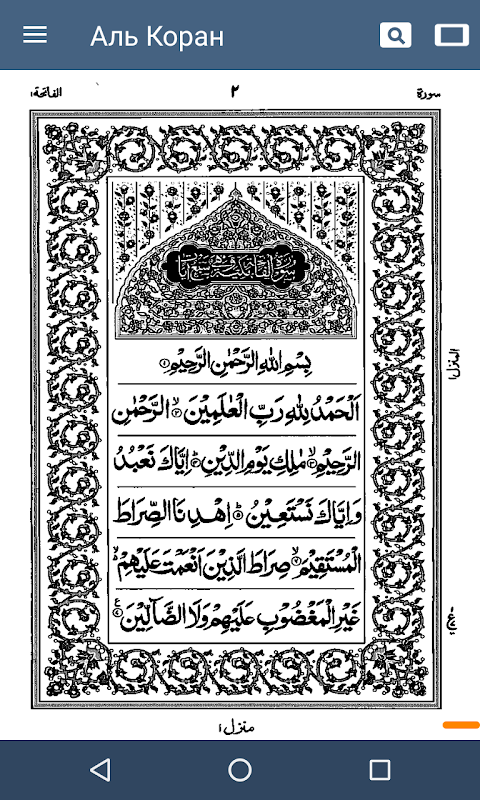 Аль Коран
سورة ٢ الفاتحة١
سورة الفاتحة مكية وهي سبع آيات
بِسْمِ اللهِ الرَّحْمٰنِ الرَّحِيْمِ ۝١
اَلْحَمْدُ لِلهِ رَبِّ الْعٰلَمِيْنَ ۝٢ الرَّحْمٰنِ
الرَّحِيْمِ ۝٣ مٰلِكِ يَوْمِ الدِّيْنِ ۝٤ اِيَّاكَ نَعْبُدُ
وَاِيَّاكَ نَسْتَعِيْنُ ۝٥ اِهْدِنَا الصِّرَاطَ
الْمُسْتَقِيْمَ ۝٦ صِرَاطَ الَّذِيْنَ اَنْعَمْتَ عَلَيْهِمْ
غَيْرِ الْمَغْضُوْبِ عَلَيْهِمْ وَلَا الضَّآلِّيْنَ ۝٧
المنزل١
منزل١